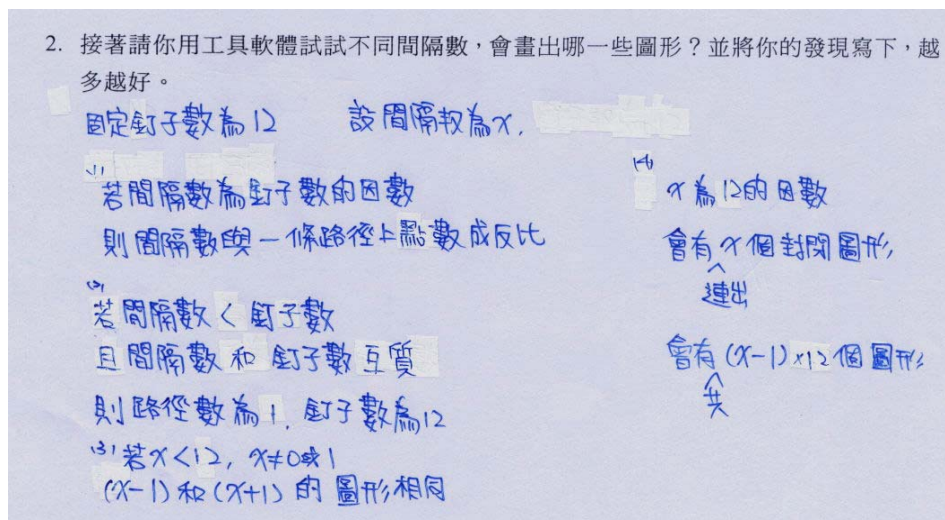 2. 接著請你用工具軟體試試不同間隔數，會畫出哪一些圖形？並將你的發現寫下，越
多越好。
固定釘子數為12 設間隔數為x.
(1)
若間隔數為釘子數的因數
則間隔數與一條路徑上點數成反比
(2)
若間隔數<釘子數
且間隔數和釘子數互質
則路徑數為1. 釘子數為12
(3)若x<12, x≠0或1
(x-1)和(x+1)的圖形相同
(4)
x為12的因數
會有x個封閉圖形
連出
會有(x-1)×12個圖形
共